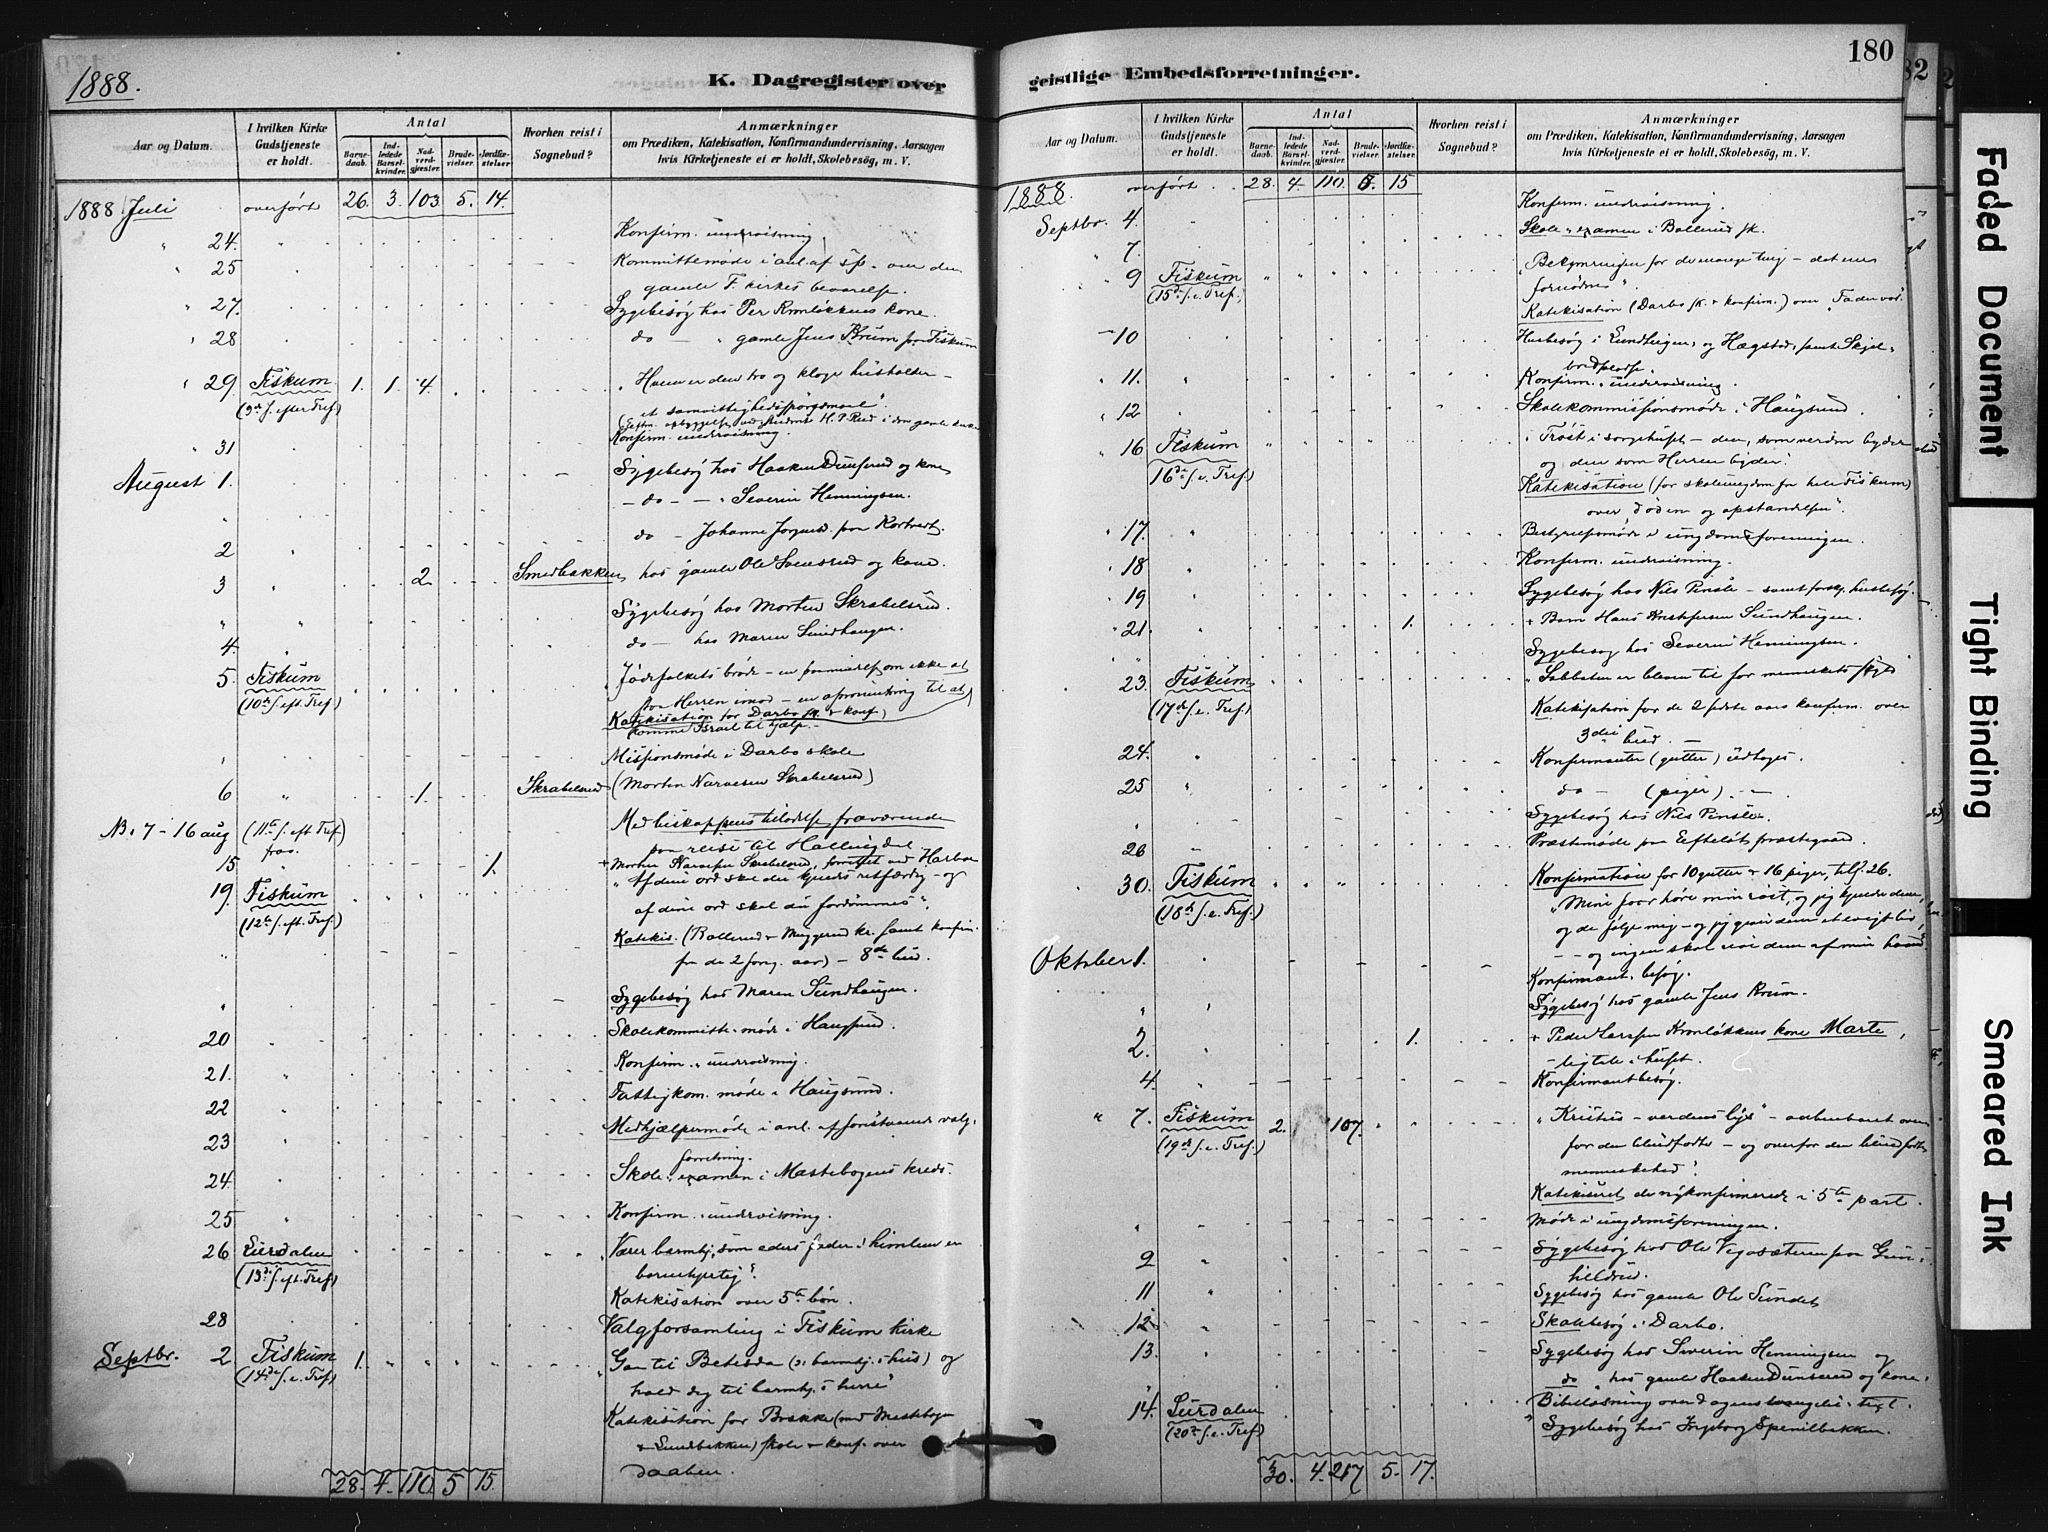 1888.
K. Dagregister over
Aar og Datum.
I hvilken Kirke Gudstjeneste er holdt.
Antal
Barnedaab.
Indledede Barselkvinder.
Nadverdgjæster.
Brudevielser.
Jordfæstelser.
Hvorhen reist i Sognebud?
Anmærkninger
om Prædiken, Katekisation, Konfirmandundervisning, Aarsagen
hvis Kirketjeneste ei er holdt, Skolebesøg, m. V.
1888 Juli overført 26. 3. 103. 5. 14.
24. Konfirm. undervisning
25 Kommittemøde i anl. af sp. om den
gamle F. kirkes bevarelse.
27. Sygebesøg hos Per Kronløkkens kone.
28 do — gamle Jens Krum paa Fiskum
29. Fiskum 1. 1. 4. "Hvem er den tro og kloge husholder –
(9de s. efter Tref.) et samvittighedsspørgsmaal".
31 Konfirm. undervisning.
August 1. Sygebesøg hos Haaken Dunserud og kone
– do – – Severin Henningsen.
2 do – Johanne paa
3 2. Smedbakken hos gamle Ole og kone.
Sygebesøg hos Morten Skrabelsrud.
4. do – hos Maren Sundhaugen.
5. Fiskum Jødefolkets brøde – en om ikke at
(10de s. eft. Tref.) Herren imod – en til at
Katekisation for Darbo sk. + konf.
komme Israel til hjælp.
Missionsmøde i Darbo skole
6 1. Skrabelsrud (Morten Narvesen Skrabelsrud)
NB. 7 – 16 aug (11te s. eft. Tref.) Med biskoppens tilladelse fraværende
frav. paa reise til Hallingdal
15 1. + Morten Narvesen Skrabelsrud, forrettet ved
19. Fiskum "Af dine ord skal du kjendes retfærdig – og
(12te s. eft. Tref.) af dine ord skal du fordømmes".
Katekis. (Bollerud + Muggerud kr. samt konfirm.
fra de 2 aar) – 8de bud.
Sygebesøg hos Maren Sundhaugen.
20 Skolekommiss. møde i Haugsund.
21. Konfirm. undervisning.
22 Fattigkom. møde i Haugsund.
23 Medhjælpermøde i anl. af valg.
forretning.
24. Skole examen i Mastebogens kreds.
25 Konfirm. undervisning.
26 Lurdalen "Værer barmhj. som eders fader i himlen er
(13de s. eft. Tref.) barmhjertig".
Katekisation over 5te bøn.
28 Valgforsamling i Fiskum Kirke
Septbr. 2 Fiskum 1. "Gaa til Betesda (o: barmhj.s hus) og
(14de s. e. Tref.) hold dig til barmhj.s herre"
Katekisation for Bakke (med Mastebogen
+ Lundbakken) skole + konf. over
daaben.
28. 4. 110. 5 15.
geistlige Embedsforretninger.
180
Aar og Datum.
I hvilken Kirke Gudstjeneste er holdt.
Antal
Barnedaab.
Indledede Barselkvinder.
Nadverdgjæster.
Brudevielser.
Jordfæstelser.
Hvorhen reist i Sognebud?
Anmærkninger
om Prædiken, Katekisation, Konfirmandundervisning, Aarsagen
hvis Kirketjeneste ei er holdt, Skolebesøg, m. V.
1888. overført 28. 4. 110. 5. 15
Septbr. 4. Konfirm. undervisning.
7. Skole examen i Bollerud sk.
9 Fiskum "Bekymringen for de mange ting – det ene
(15de s. e. Tref.) fornødne".
Katekisation (Darbo sk. + konfirm.) over "Fader vor".
10 Husbesøg i Lundhaugen, og Hægstad, samt Skjel-
11. Konfirm. undervisning.
12 Skolekommissionsmøde i Haugsund.
16 Fiskum "Trøst i sorgehuset – den, som verden byder
16de s. e. Tref.) og den som Herren byder".
Katekisation (for skoleungdom fra hele Fiskum)
over "døden og opstandelsen".
17. Bestyrelsesmøde i ungdomsforeningen.
18 Konfirm. undervisning.
19 Sygebesøg hos Nils Pinsle – samt forskj. husbesøg.
21. 1. + Barn Hans Kristofersen Sundhaugen.
Sygebesøg hos Severin Henningsen.
23. Fiskum "Sabbaten er bleven til for menneskets skyld
(17de s. e. Tref.) Katekisation for de 2 sidste aars konfirm. over
3die bud. –
24. Konfirmanter (gutter) udtoges.
25 do – (piger) – –
Sygebesøg hos Nils Pinsle.
26 Præstemøde paa Eftelöt præstegaard.
30. Fiskum Konfirmation for 10 gutter + 16 piger, tils. 26.
(18de s. e. Tref.) "Mine faar høre min røst, og jeg kjender dem,
og de følge mig – og jeg giver dem et evigt liv
– – og ingen skal rive dem af min haand".
Oktober 1. Konfirmant. besøg.
Sygebesøg hos gamle Jens Krum.
2. 1. + Peder Larssen Kronløkkens kone Marte,
– ligtale i huset.
4. Konfirmantbesøg.
7. Fiskum 2. 107. "Kristus – verdens lys" – aabenbaret over-
(19de s. e. Tref.) for den blindfødte – og overfor den blindfødte
menneskehed".
Katekiseret de nykonfirmerede i 5te part.
Møde i ungdomsforeningen.
9 Sygebesøg hos Ole paa Gun-
hildrud.
11 Sygebesøg hos gamle Ole Sundet
12 Skolebesøg i Darbo.
13. Sygebesøg hos Severin Henningsen og
do hos gamle Haaken Dunserud og kone.
14. Lurdalen Bibellæsning over dagens evangelie-text.
(20de s. e. Tref.) Sygebesøg hos Ingeborg Spernilbakken.
30. 4. 217 5. 17.
Faded Document
Tight Binding
Smeared Ink